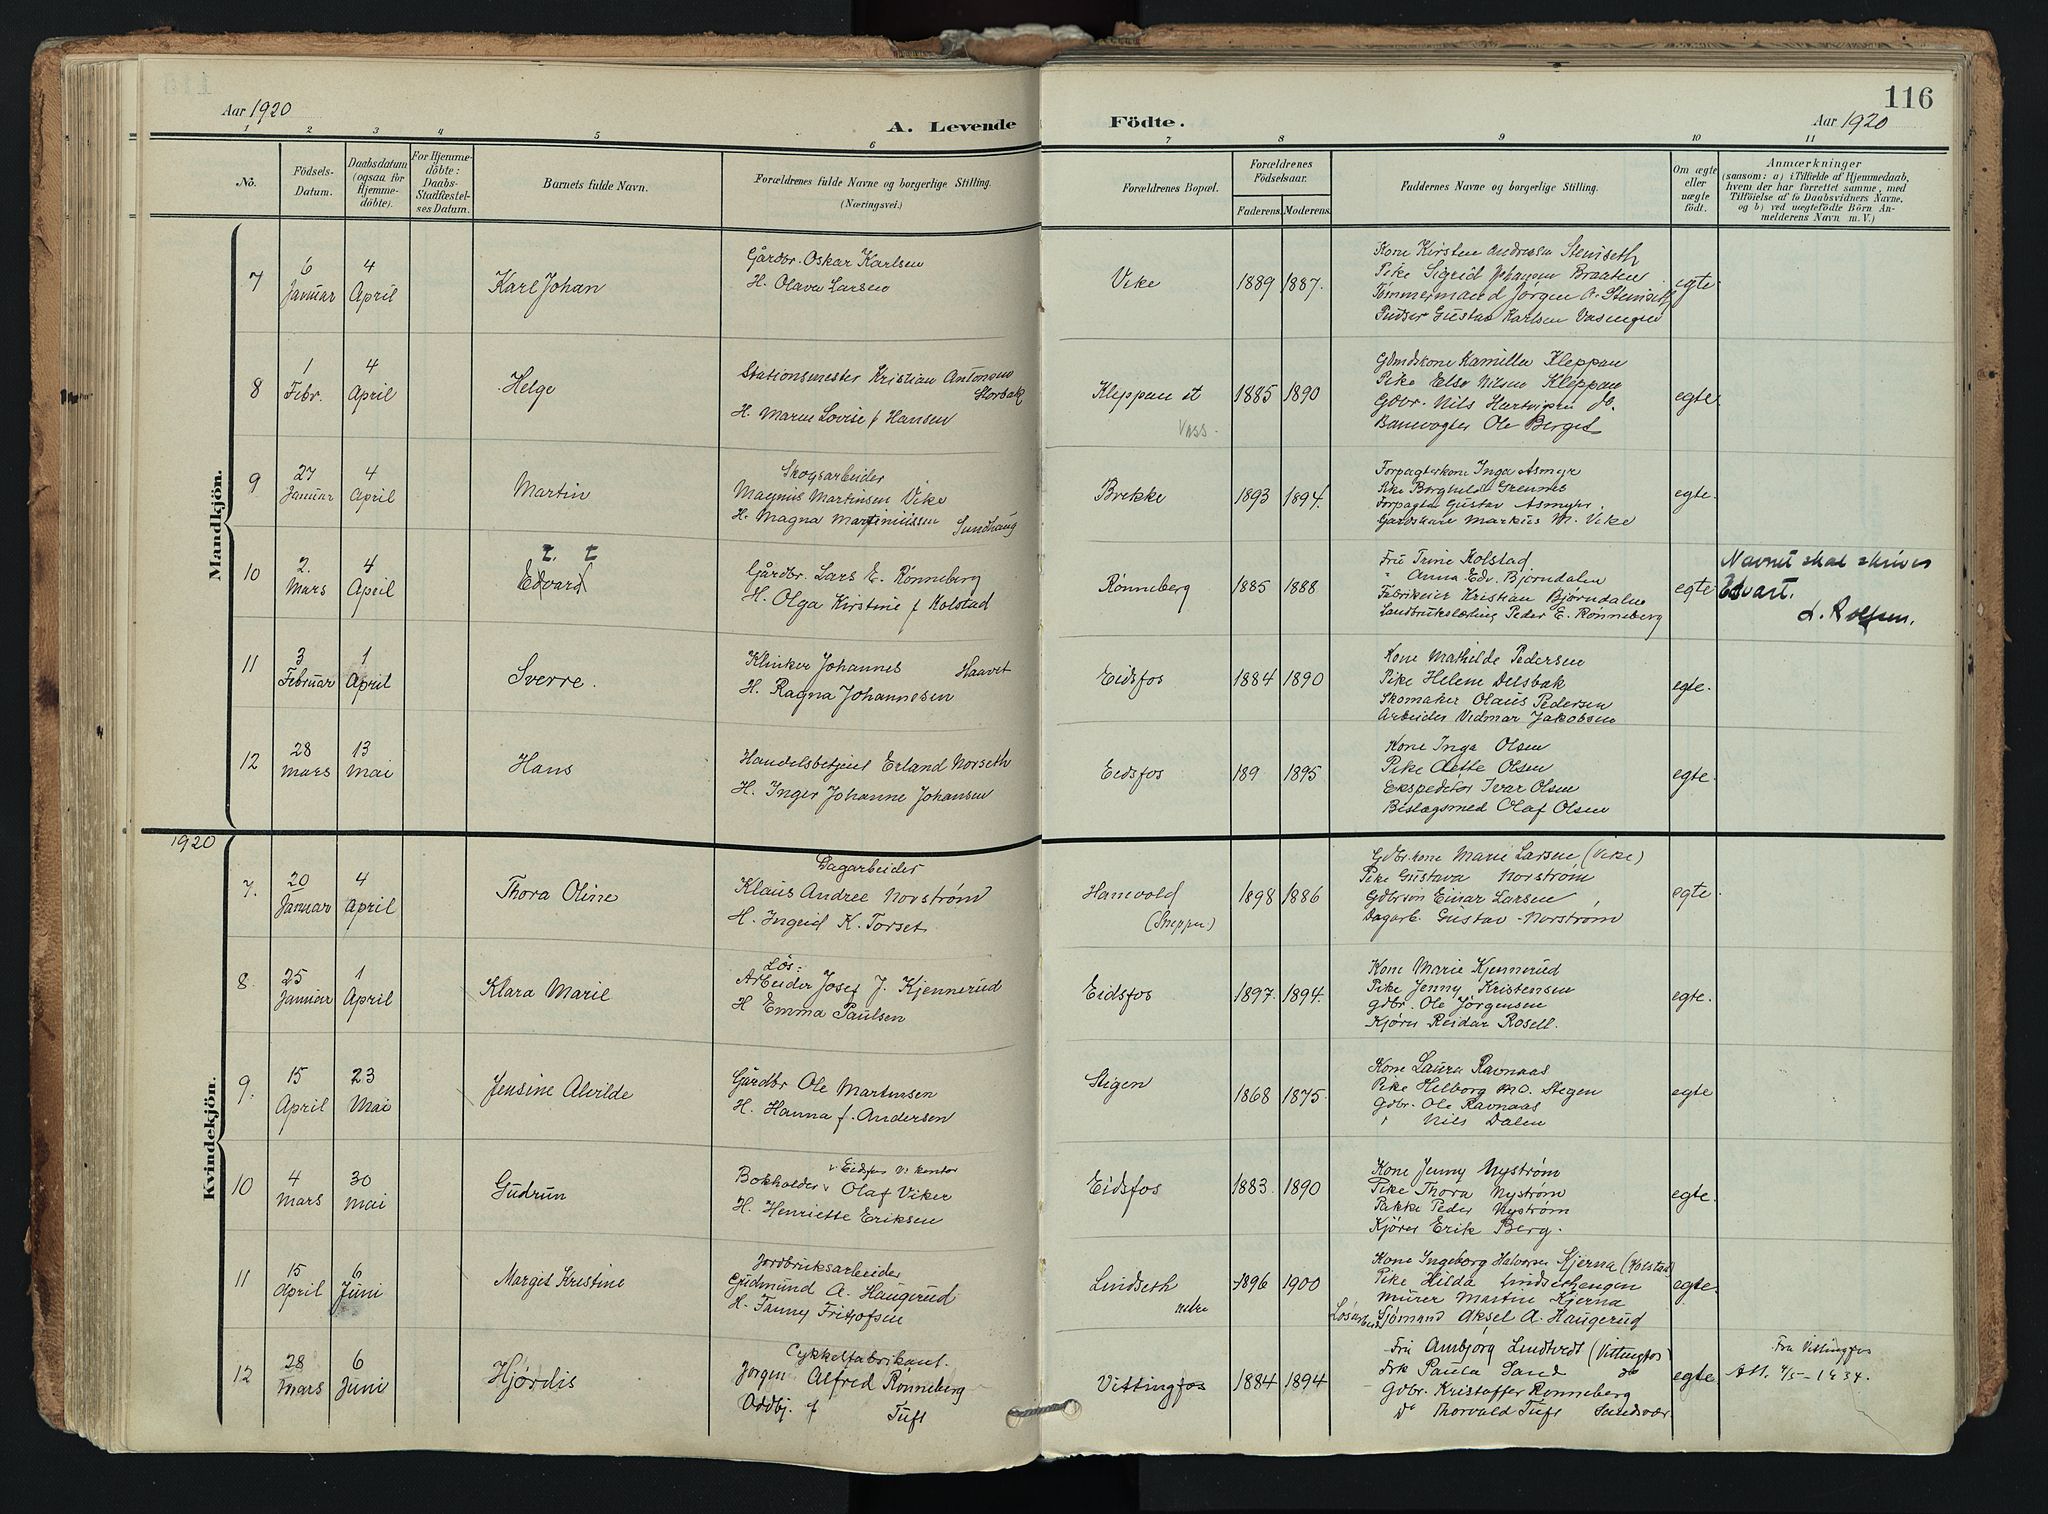 116
Aar 1920
A. Levende Födte.
Aar 1920
1 2 3 4 5 6 7 8 9 10 11
No.
Födsels-Datum.
Daabsdatum (ogsaa for Hjemme-döbte).
For Hjemme-döbte: Daabs-Stadfæstel-ses Datum.
Barnets fulde Navn.
Forældrenes fulde Navne og borgerlige Stilling. (Næringsvei.)
Forældrenes Bopæl.
Forældrenes Födselsaar.
Faderens. Moderens.
Faddernes Navne og borgerlige Stilling.
Om ægte eller uægte födt.
Anmærkninger
(saasom: a) i Tilfælde af Hjemmedaab, hvem der har forrettet samme, med Tilföielse af to Daabsvidners Navne, og b) ved uægtefödte Börn An-melderens Navn m. V.)
Mandkjön.
7
6 Januar
4 April
Karl Johan
Gårdbr. Oskar Karlsen
H. Olava Larsen
Vike
1889 1887.
Kone Kirsten Andresen Stenseth
Pike Sigrid Johansen Braaten
Tømmermand Jørgen A. Stenseth
Pudser Gustav Karlsen
egte
8
1 Febr.
4 April
Helge
Stationsmester Kristian Antonsen
Horbak
H. Maren Lovise f Hansen
Kleppan st
Vass.
1885 1890
Gdmdskone Kamilla Kleppan
Pike Else Nilsen Kleppan
Gdbr. Nils Hartvigsen do.
Banevogter Ole Berget
egte.
9
27 Januar
4 April
Martin
Skogsarbeider
Magnus Martinsen Vike
H. Magna Martiniussen
Sundhaug
Brekke
1893 1894.
Forpagterkone Inga Asmyr
Pike Borghild Grennes
Forpagter Gustav Asmyhr.
Markus M. Vike
egte.
10
2. Mars
4 April
t. t
Edvard
Gårdbr. Lars E. Rønneberg
H. Olga Kirstine f Kolstad
Rønneberg
1885 1888
Fru Trine Kolstad
" Anna Edv. Bjørndalen
Fabrikeier Kristian Bjørndalen
Peder E. Rønneberg
egte
Navnet skal skrives
Edvart.
11
3 Februar
1 April
Sverre.
Klinker Johannes Haavet
H. Ragna Johannesen
Eidsfos
1884 1890
Kone Mathilde Pedersen
Pike Helene Delsbak
Skomaker Olaus Pedersen
Arbeider Vidmar Jakobsen
egte.
12
28 Mars
13 Mai
Hans
Handelsbetjent Erland Norseth
H. Inger Johanne Johansen
Eidsfos
189 1895
Kone Inga Olsen
Pike Aette Olsen
Ekspeditør Ivar Olsen
Beslagsmed Olaf Olsen
egte.
1920
Kvindekjön.
7.
20 Januar
4 April
Thora Oline
Dagarbeider
Klaus Andree Norstrøm
H. Ingrid K. Torset
Hanevold
1898 1886
Gdbr.kone Marie Larsen (Vike)
Pike Gustava Norstrøm
Gdbrsøn Einar Larsen
Dagarb. Gustav Norstrøm
egte
8.
25 Januar
1 April
Klara Maril
Løs:
Arbeider Josef J. Kjennerud
H Emma Paulsen
Eidsfos
1897. 1894.
Kone Marie Kjennerud
Pike Jenny Kristensen
gdbr. Ole Jørgensen
Kjører Reidar Rosell.
egte.
9.
15 April
23 Mai
Jensine Alvilde
Gårdbr Ole Martinsen
H. Hanna f. Andersen
Stigen
1868 1875.
Kone Laura Ravnaas
Pike Helborg M.O. Stegen
Gdbr. Ole Ravnaas
" Nils Dalen
egte
10
4 Mars
30 Mai
Gudrun
v Eidsfos V. kontor
Bokholder Olaf Viker
H. Henriette Eriksen
Eidsfos
1883. 1890
Kone Jenny Nystrøm
Pike Thora Nystrøm
Pakke Peder Nystrøm
Kjører Erik Berg.
egte.
11
15 April
6 Juni
Margit Kristine
Jordbruksarbeider
Gudmund A. Haugerud
H. Fanny Fritjofsen
Lindseth
nedre
1896 1900
Kone Ingeborg Halvorsen Kjerna (Kolstad)
Pike Hilda Lindsethengen
Murer Martin Kjerna
Løsarbeid. Sjømand Aksel A. Haugerud
egte.
12
28 Mars
6 Juni
Hjørdis
Cykkelfabrikant.
Jørgen Alfred Rønneberg
Oddbj. f Tuft
Vittingfos
1884 1894
Fru Ambjørg Lindtvedt (Vittingfos)
Frk Paula Sand do
Gdbr. Kristoffer Rønneberg
Do Thorvald Tuft Sandsvær
egte.
Fra Vittingfos
Att. 4/5-1934.